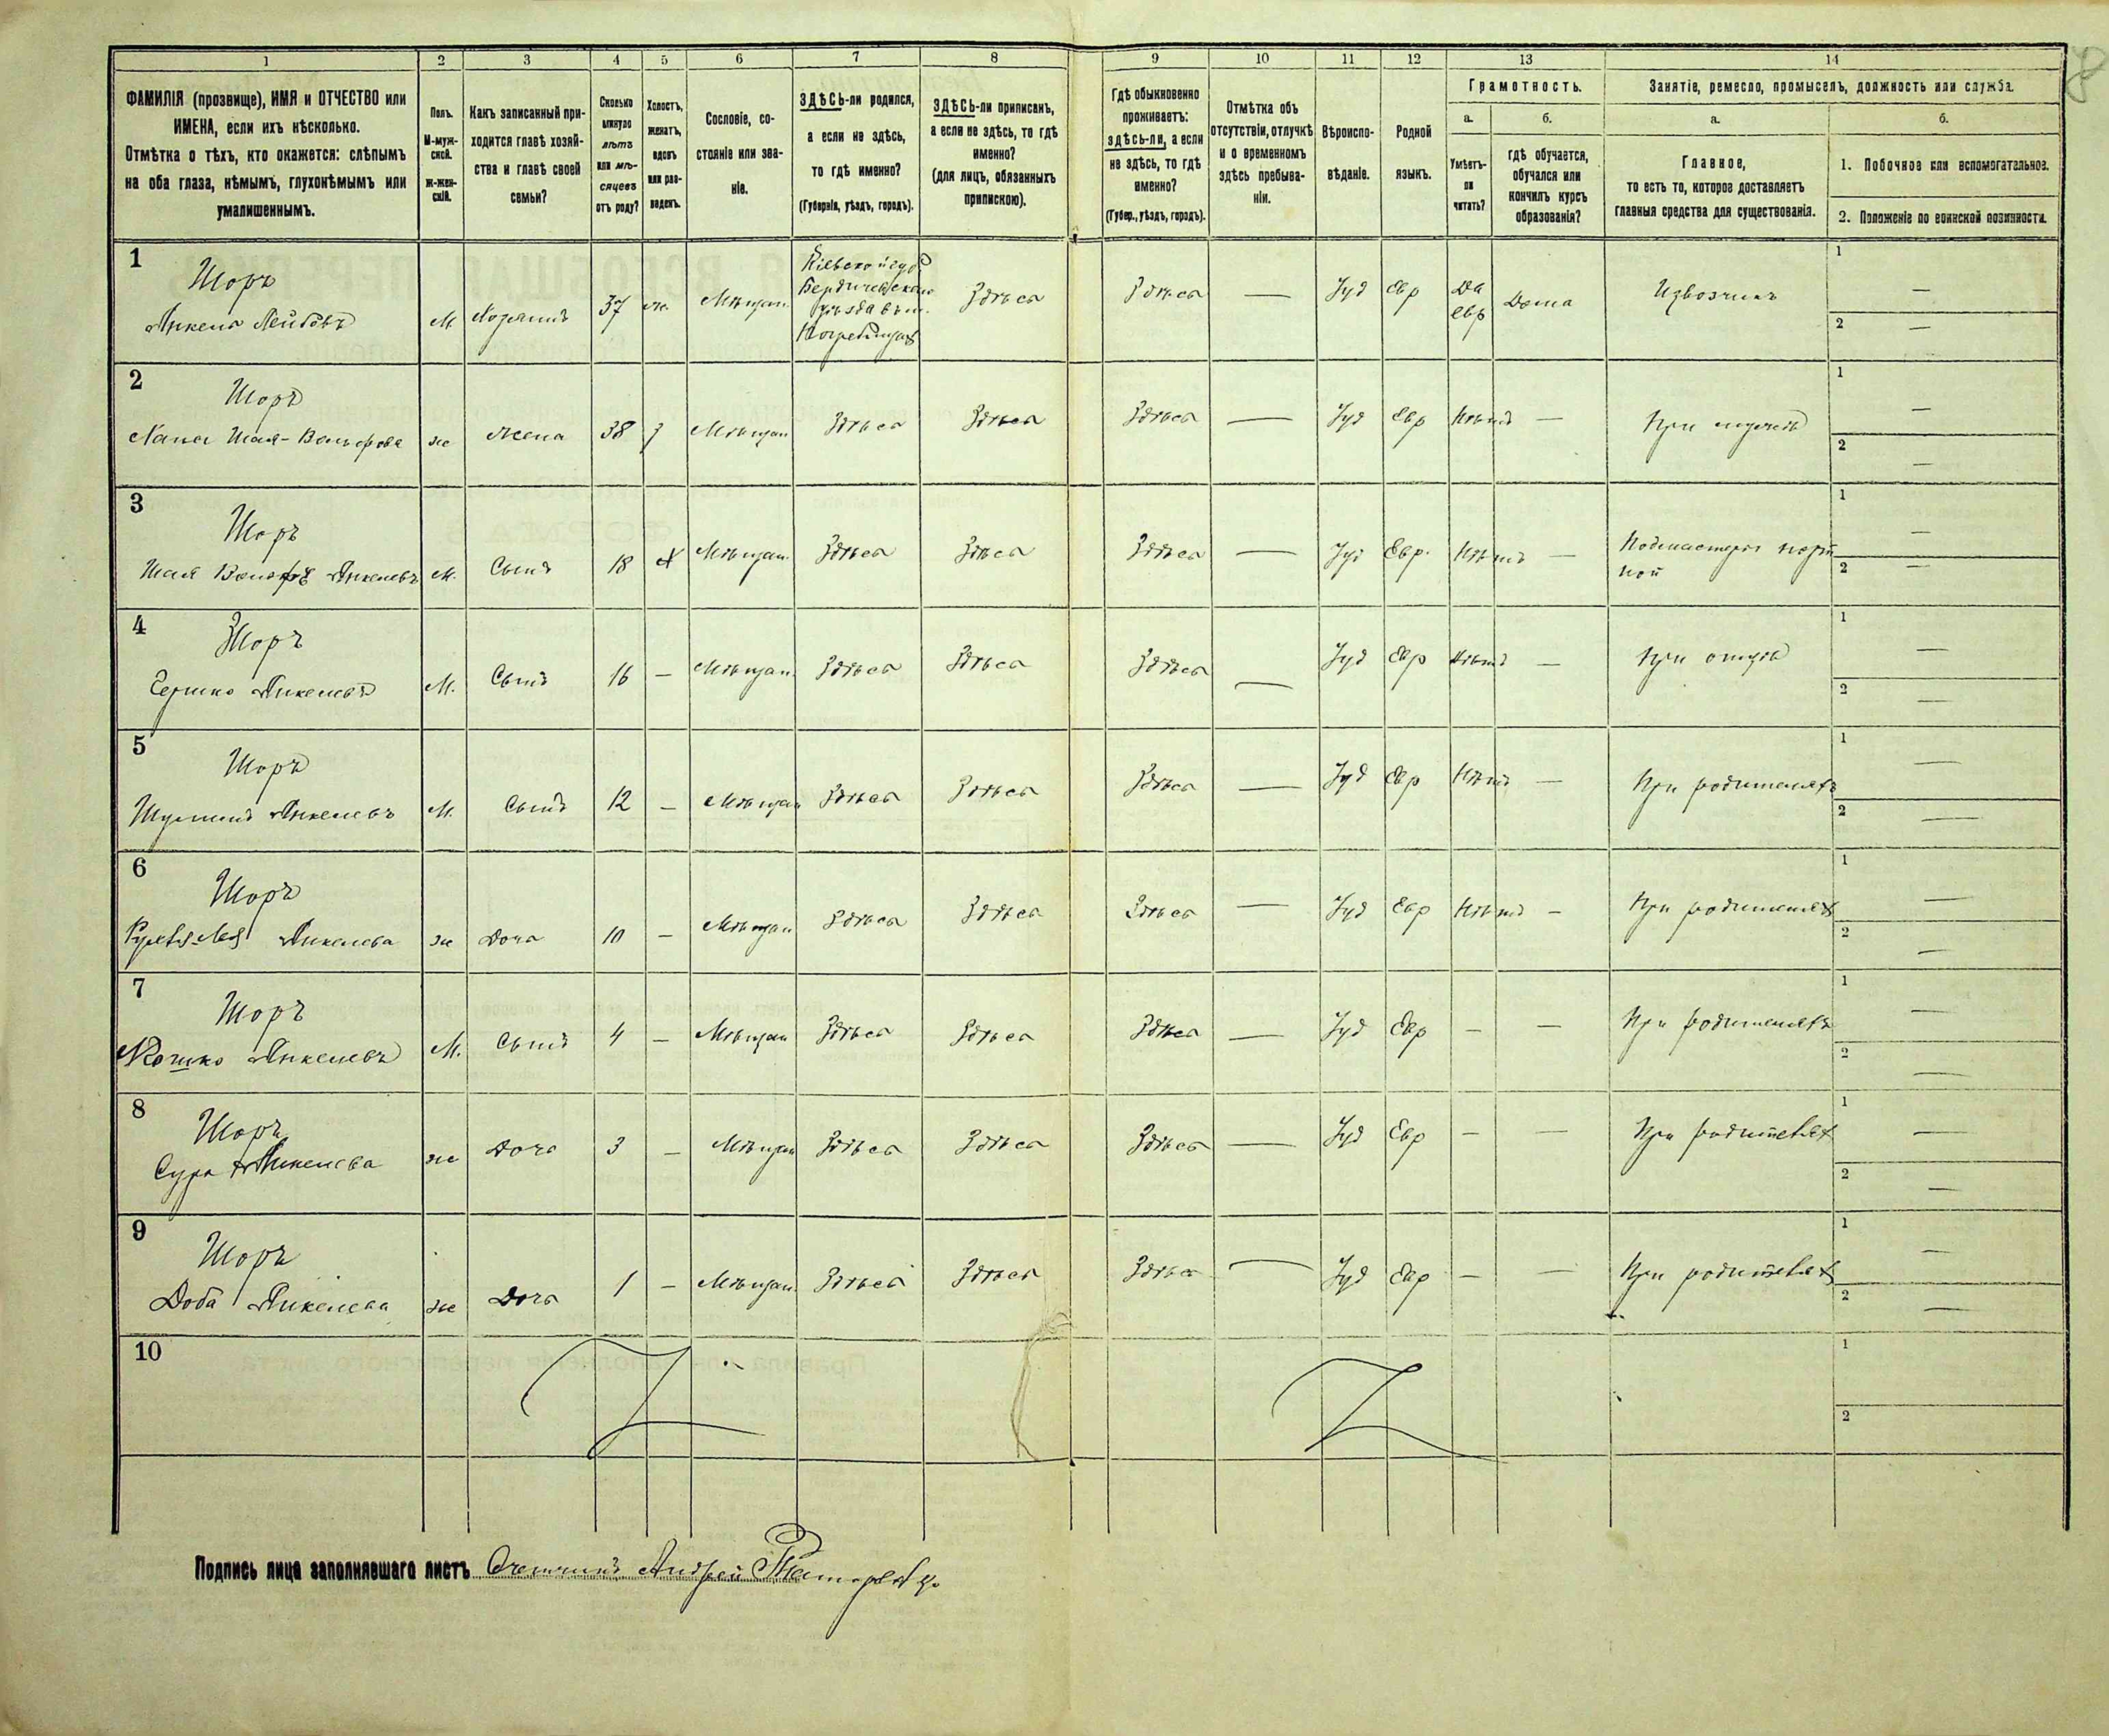 1 2 3 4 5 6 7 8 9 10 11 12 13 14
ФАМИЛІЯ (прозвище), ИМЯ и ОТЧЕСТВО или
ИМЕНА, если ихъ нѣсколько.
Отмѣтка о тѣхъ, кто окажется: слѣпымъ
на оба глаза, нѣмымъ, глухонѣмымъ или
умалишеннымъ.
Полъ.
М-муж-
ской.
ж-жен-
скій.
Какъ записанный при-
ходится главѣ хозяй-
ства и главѣ своей
семьи?
Сколько
минуло
лѣтъ
или мѣ-
сяцевъ
отъ роду?
Холостъ,
женатъ,
вдовъ
или раз-
веденъ.
Сословіе, со-
стояніе или зва-
ніе.
ЗДѢСЬ-ли родился,
а если не здѣсь,
то гдѣ именно?
(Губернія, уѣздъ, городъ).
ЗДѢСЬ-ли приписанъ,
а если не здѣсь, то гдѣ
именно?
(для лицъ, обязанныхъ
припискою).
Гдѣ обыкновенно
проживаетъ:
здѣсь-ли, а если
не здѣсь, то гдѣ
именно?
(Губер., уѣздъ, городъ).
Отмѣтка объ
отсутствіи, отлучкѣ
и о временномъ
здѣсь пребыва-
ніи.
Вѣроиспо-
вѣданіе.
Родной
языкъ.
Грамотность.
а.
Умѣетъ-
ли
читать?
б.
гдѣ обучается,
обучался или
кончилъ курсъ
образованія?
Занятіе, ремесло, промыселъ, должность или служба.
а.
Главное,
то есть то, которое доставляетъ
главныя средства для существованія.
б.
1. Побочное или вспомогательное.
2. Положеніе по воинской повинности.
1
Шоръ
Янкель Лейбовъ
М.
Хозяинъ
37
ж.
Мѣщан.
Кіевской губ.
Бердичевскаго
уѣзда в м.
Погребищах
Здѣсь
Здѣсь
—
Іуд
Евр
Да
евр
Дома
Извозчикъ
1 —
2 —
2
Шоръ
Хана Шая-Вольфова
ж
Жена
38
з
Мѣщан
Здѣсь
Здѣсь
Здѣсь
—
Іуд
Евр
Нѣтъ
—
При мужѣ
1 —
2 —
3
Шоръ
Шая Вольфъ Янкелевъ
М.
Сынъ
18
х
Мѣщан.
Здѣсь
Здѣсь
Здѣсь
—
Іуд
Евр.
Нѣтъ
—
Подмастерье порт
ной
1 —
2 —
4
Шоръ
Гершко Янкелевъ
М.
Сынъ
16
—
Мѣщан.
Здѣсь
Здѣсь
Здѣсь
—
Іуд
Евр
Нѣтъ
—
При отцѣ
1 —
2 —
5
Шоръ
Шулимъ Янкелевъ
М.
Сынъ
12
—
Мѣщан
Здѣсь
Здѣсь
Здѣсь
—
Іуд
Евр
Нѣтъ
—
При родителяхъ
1 —
2 —
6
Шоръ
Янкелева
ж
Дочь
10
—
Мѣщан
Здѣсь
Здѣсь
Здѣсь
—
Іуд
Евр
Нѣтъ
—
При родителях
1 —
2 —
7
Шоръ
Мошко Янкелевъ
М.
Сынъ
4
—
Мѣщан
Здѣсь
Здѣсь
Здѣсь
—
Іуд
Евр
—
—
При родителяхъ
1 —
2 —
8
Шоръ
Сура Янкелева
ж
Дочь
3
—
Мѣщан
Здѣсь
Здѣсь
Здѣсь
—
Іуд
Евр
—
—
При родителях
1 —
2 —
9
Шоръ
Доба Янкелева
ж
Дочь
1
—
Мѣщан.
Здѣсь
Здѣсь
Здѣсь
—
Іуд
Евр
—
—
При родителях
1 —
2 —
10
1
2
Подпись лица заполнявшаго листъ Счетчикъ Андрей